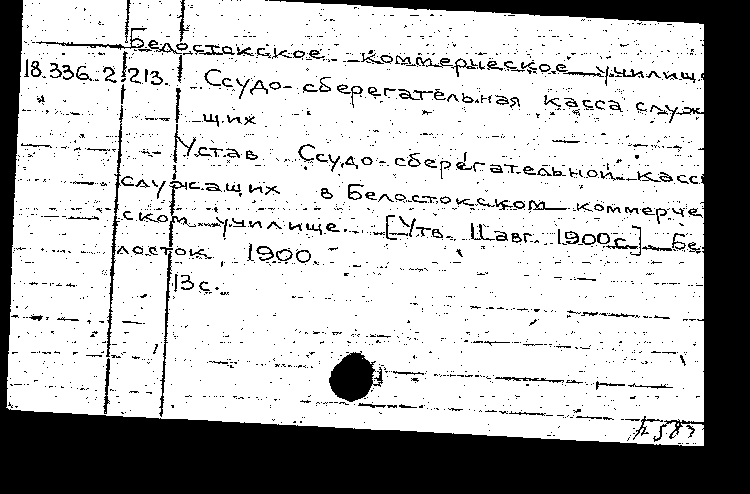 Белостокское коммерческое училищ
18.336.2.213. Ссудо-сберегательная касса служ
щих
Устав Ссудо-сберегательной касс
служащих в Белостокском коммерче
ском училище. [Утв. 11 авг. 1900г.] Бе
лосток, 1900.
13 с.